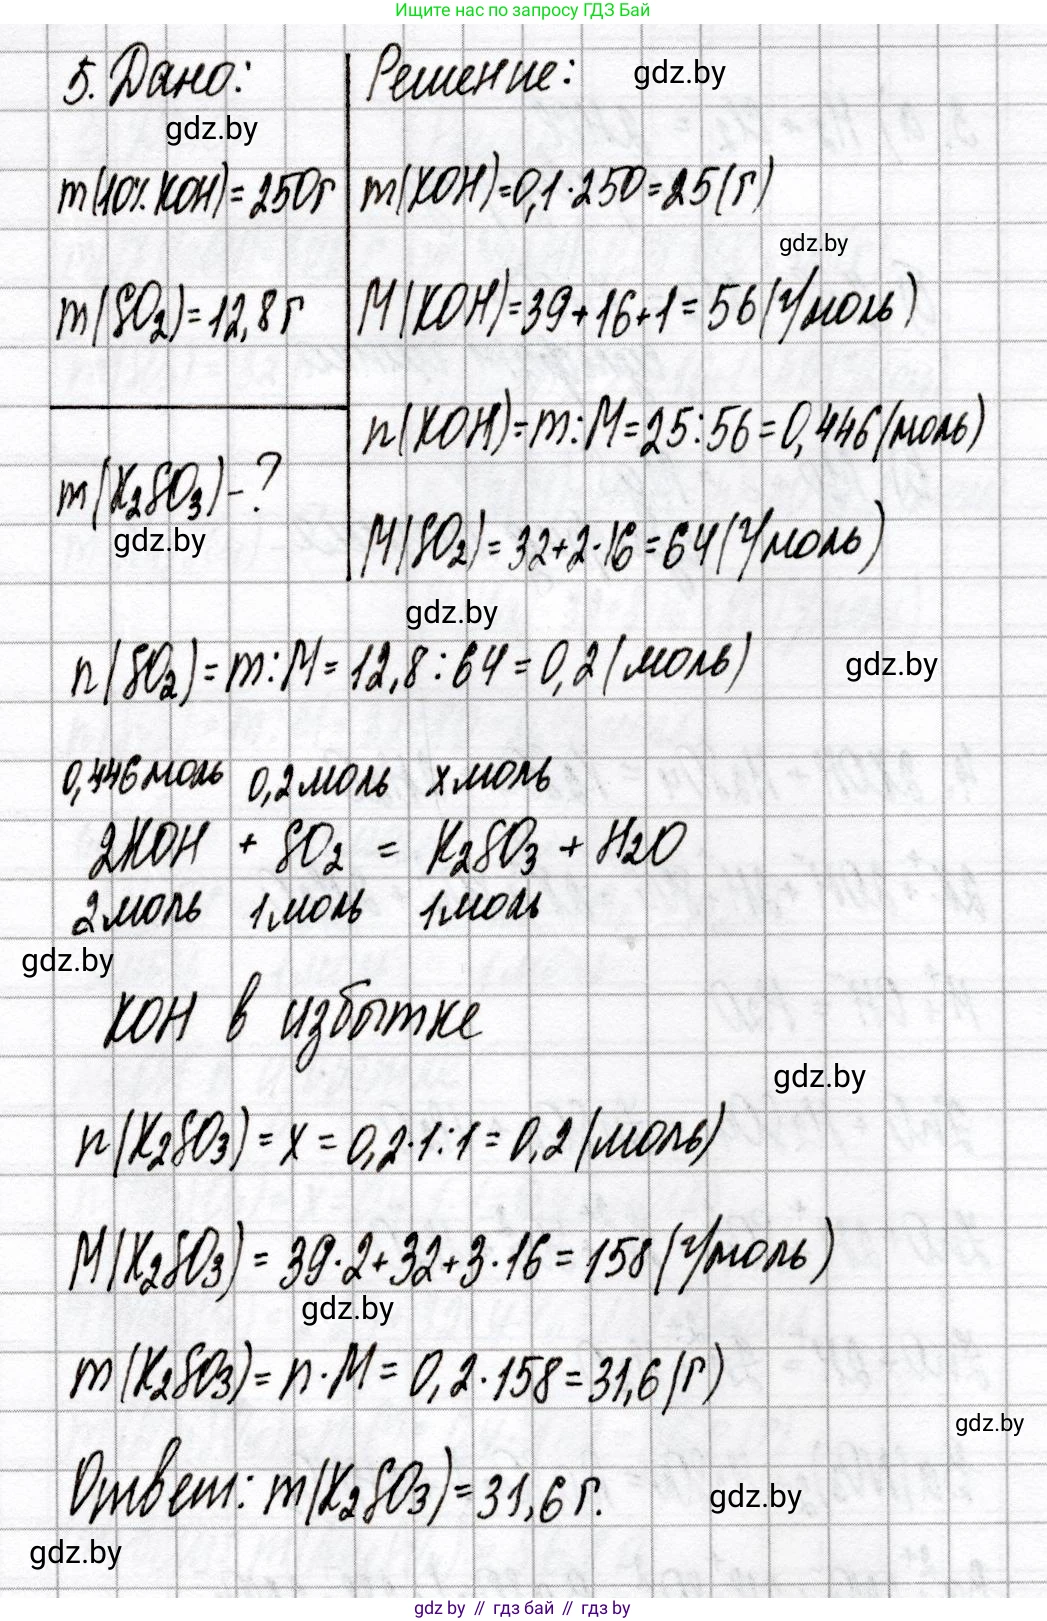 Ищите нас по запросу ГДЗ Бай
5. Дано:
Решение:
gdz.by
gdz.by
m(10% KOH)=250г
m(KOH)=0,1·250=25(г)
gdz.by
m(SO₂)=12,8г
M(KOH)=39+16+1=56(г/моль)
n(KOH)=m:M=25:56=0,446(моль)
m(K₂SO₃)-?
gdz.by
M(SO₂)=32+2·16=64(г/моль)
gdz.by
n(SO₂)=m:M=12,8:64=0,2(моль)
gdz.by
0,446моль 0,2моль xмоль
2KOH + SO₂ = K₂SO₃ + H₂O
2моль 1моль 1моль
gdz.by
KOH в избытке
gdz.by
n(K₂SO₃)=x=0,2·1:1=0,2(моль)
M(K₂SO₃)=39·2+32+3·16=158(г/моль)
gdz.by
m(K₂SO₃)=n·M=0,2·158=31,6(г)
gdz.by
Ответ: m(K₂SO₃)=31,6г.
gdz.by
gdz.by
gdz by // гдз бай // гдз by